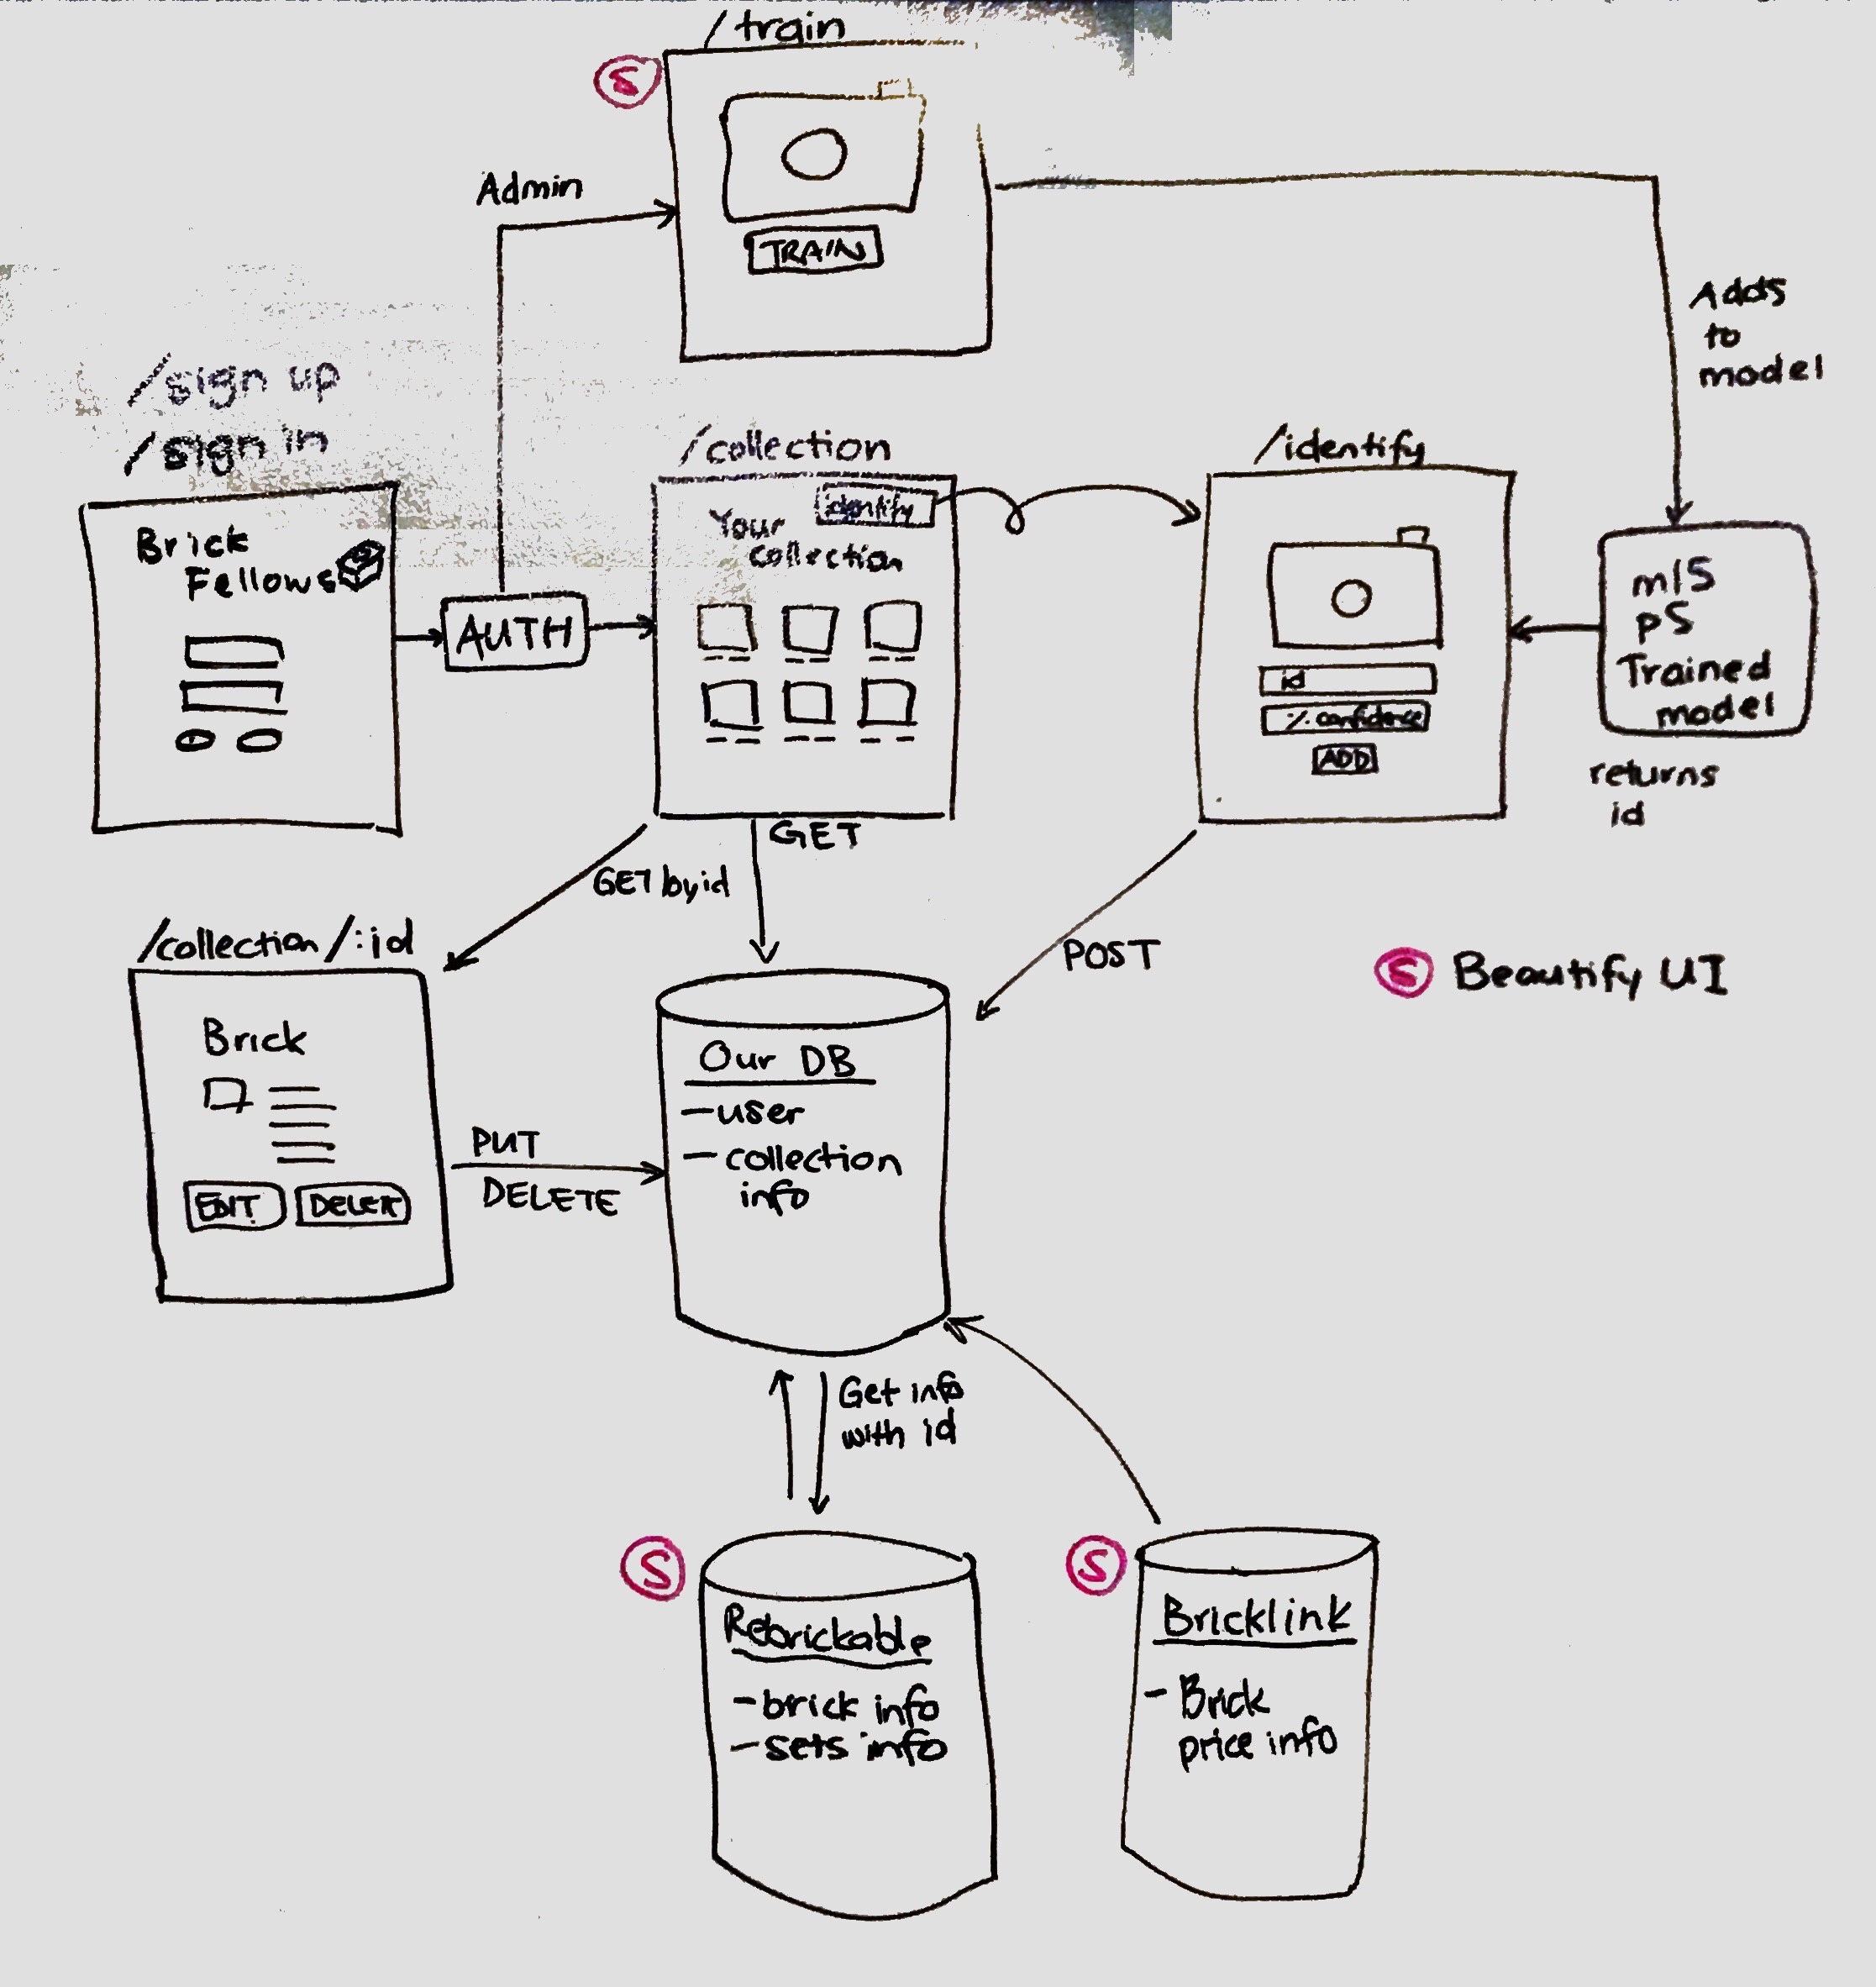 /train
S
TRAIN
Admin
Adds
to
model
/sign up
/sign in
Brick
Fellows
AUTH
/collection
identify
Your
collection
/identify
id
% confidence
ADD
ml5
p5
Trained
model
returns
id
GET
GET by id
POST
S Beautify UI
/collection/:id
Brick
EDIT
DELETE
PUT
DELETE
Our DB
- user
- collection
info
Get info
with id
S
Rebrickable
- brick info
- sets info
S
Bricklink
- Brick
price info